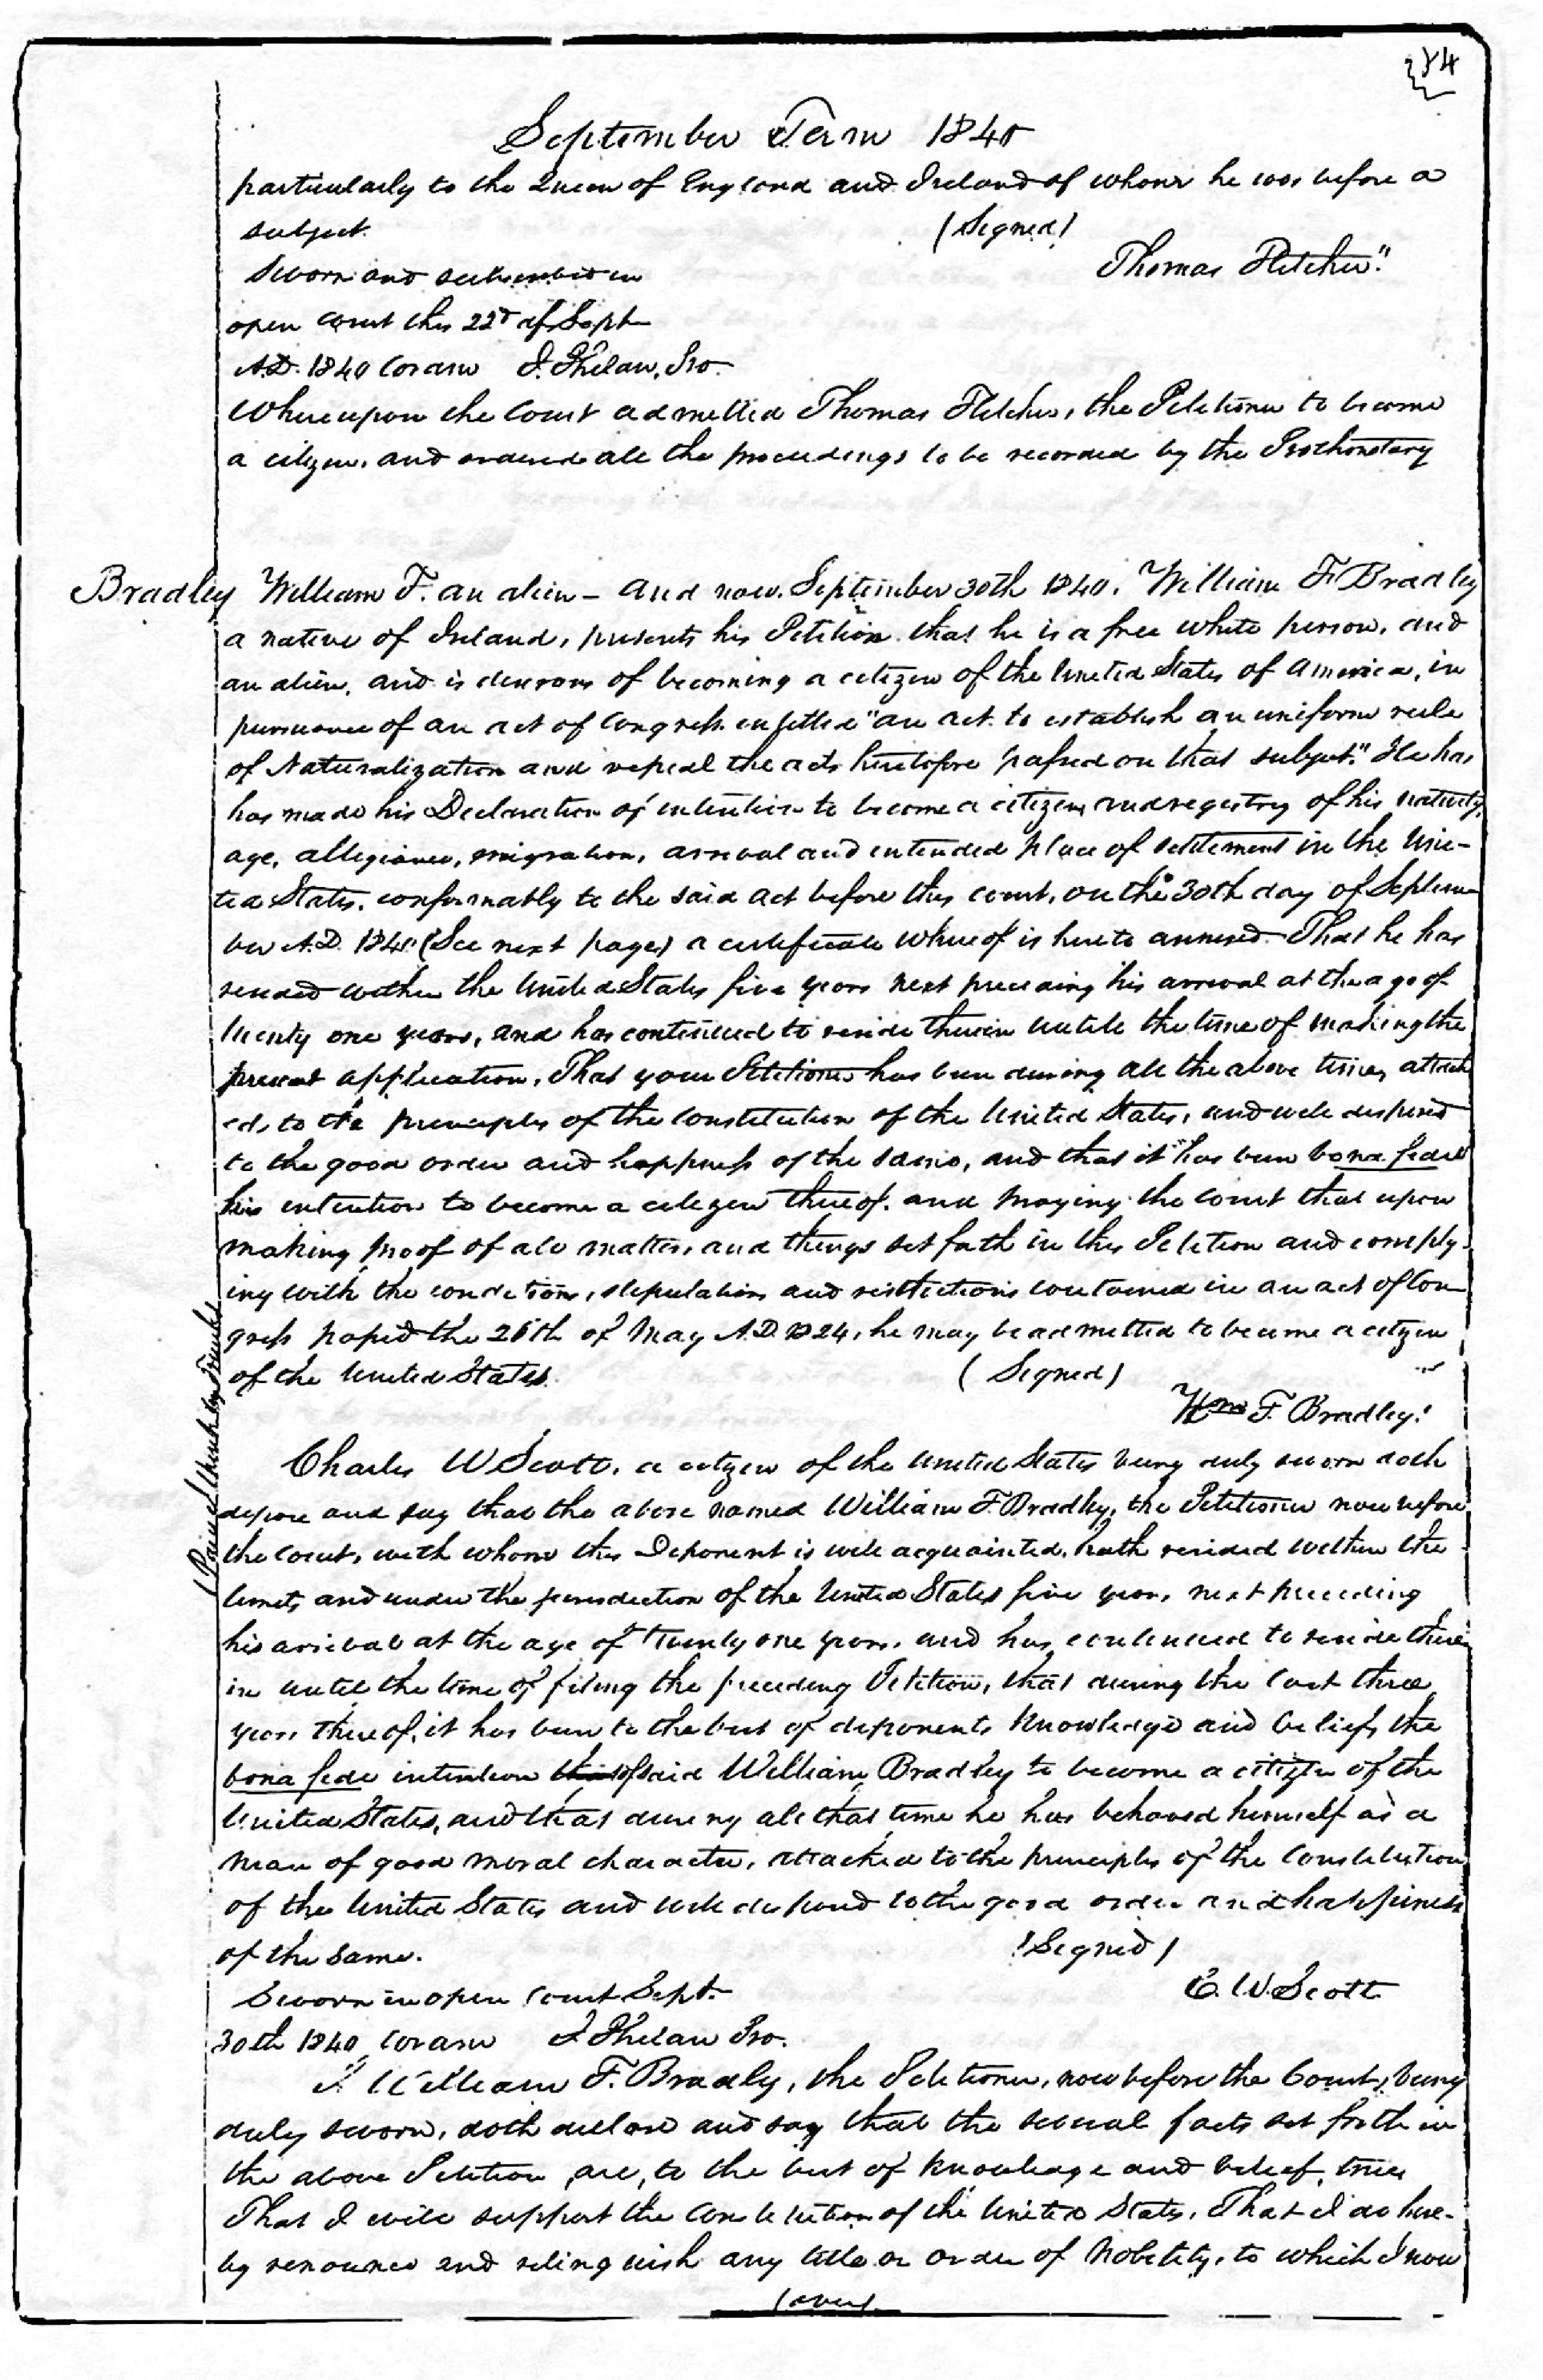 84
September Term 1840
particularly to the Queen of England and Ireland of whom he was before a
subject. (Signed)
Thomas Fletcher."
Sworn and subscribed in
open court this 22d of Sept.
A.D. 1840 Coram J. Phelan, Pro.
Whereupon the Court admitted Thomas Fletcher, the Petitioner to become
a citizen, and ordered all the proceedings to be recorded by the Prothonotary
Bradley William F. an alien – And now September 30th 1840. William F. Bradley
a native of Ireland, presents his Petition that he is a free white person, and
an alien, and is desirous of becoming a citizen of the United States of America, in
pursuance of an act of Congress entitled "an act to establish an uniform rule
of Naturalization and repeal the acts heretofore passed on that subject." He has
has made his Declaration of intention to become a citizen, and registry of his nativity,
age, allegiance, emigration, arrival and intended place of settlement in the Uni-
ted States, conformably to the said act before this court, on the 30th day of Septem-
ber A.D. 1840 (See next page) a certificate whereof is hereto annexed. That he has
resided within the United States five years next preceding his arrival at the age of
twenty one years, and has continued to reside therein until the time of making the
present application, That your Petitioner has been during all the above times attach
ed, to the principles of the constitution of the United States, and well disposed
to the good order and happiness of the same, and that it has been bona fide
his intention to become a citizen thereof. and praying the Court that upon
making proof of all matters and things set forth in this Petition and comply-
ing with the conditions, stipulations and restrictions contained in an act of Con
gress passed the 26th of May A.D. 1824, he may be admitted to become a citizen
of the United States. (Signed)
Wm F. Bradley."
Charles W Scott, a citizen of the United States being duly sworn doth
depose and say that the above named William F. Bradley, the Petitioner now before
the Court, with whom this Deponent is well acquainted, hath resided within the
limits and under the jurisdiction of the United States five years, next preceding
his arrival at the age of twenty one years, and has continued to reside there
in until the time of filing the preceding Petition, that during the last three
years thereof, it has been to the best of deponents knowledge and belief, the
bona fide intention of said William Bradley to become a citizen of the
United States, and that during all that time he has behaved himself as a
man of good moral character, attached to the principles of the Constitution
of the United States and well disposed to the good order and happiness
of the same. (Signed)
C. W. Scott.
Sworn in open Court Sept.
30th 1840 Coram J Phelan Pro.
I William F. Bradly, the Petitioner, now before the Court, being
duly sworn, doth declare and say that the several facts set forth in
the above Petition are, to the best of knowledge and belief, true
That I will support the Constitution of the United States, That I do here-
by renounce and relinquish any title or order of Nobility, to which I now
(over)